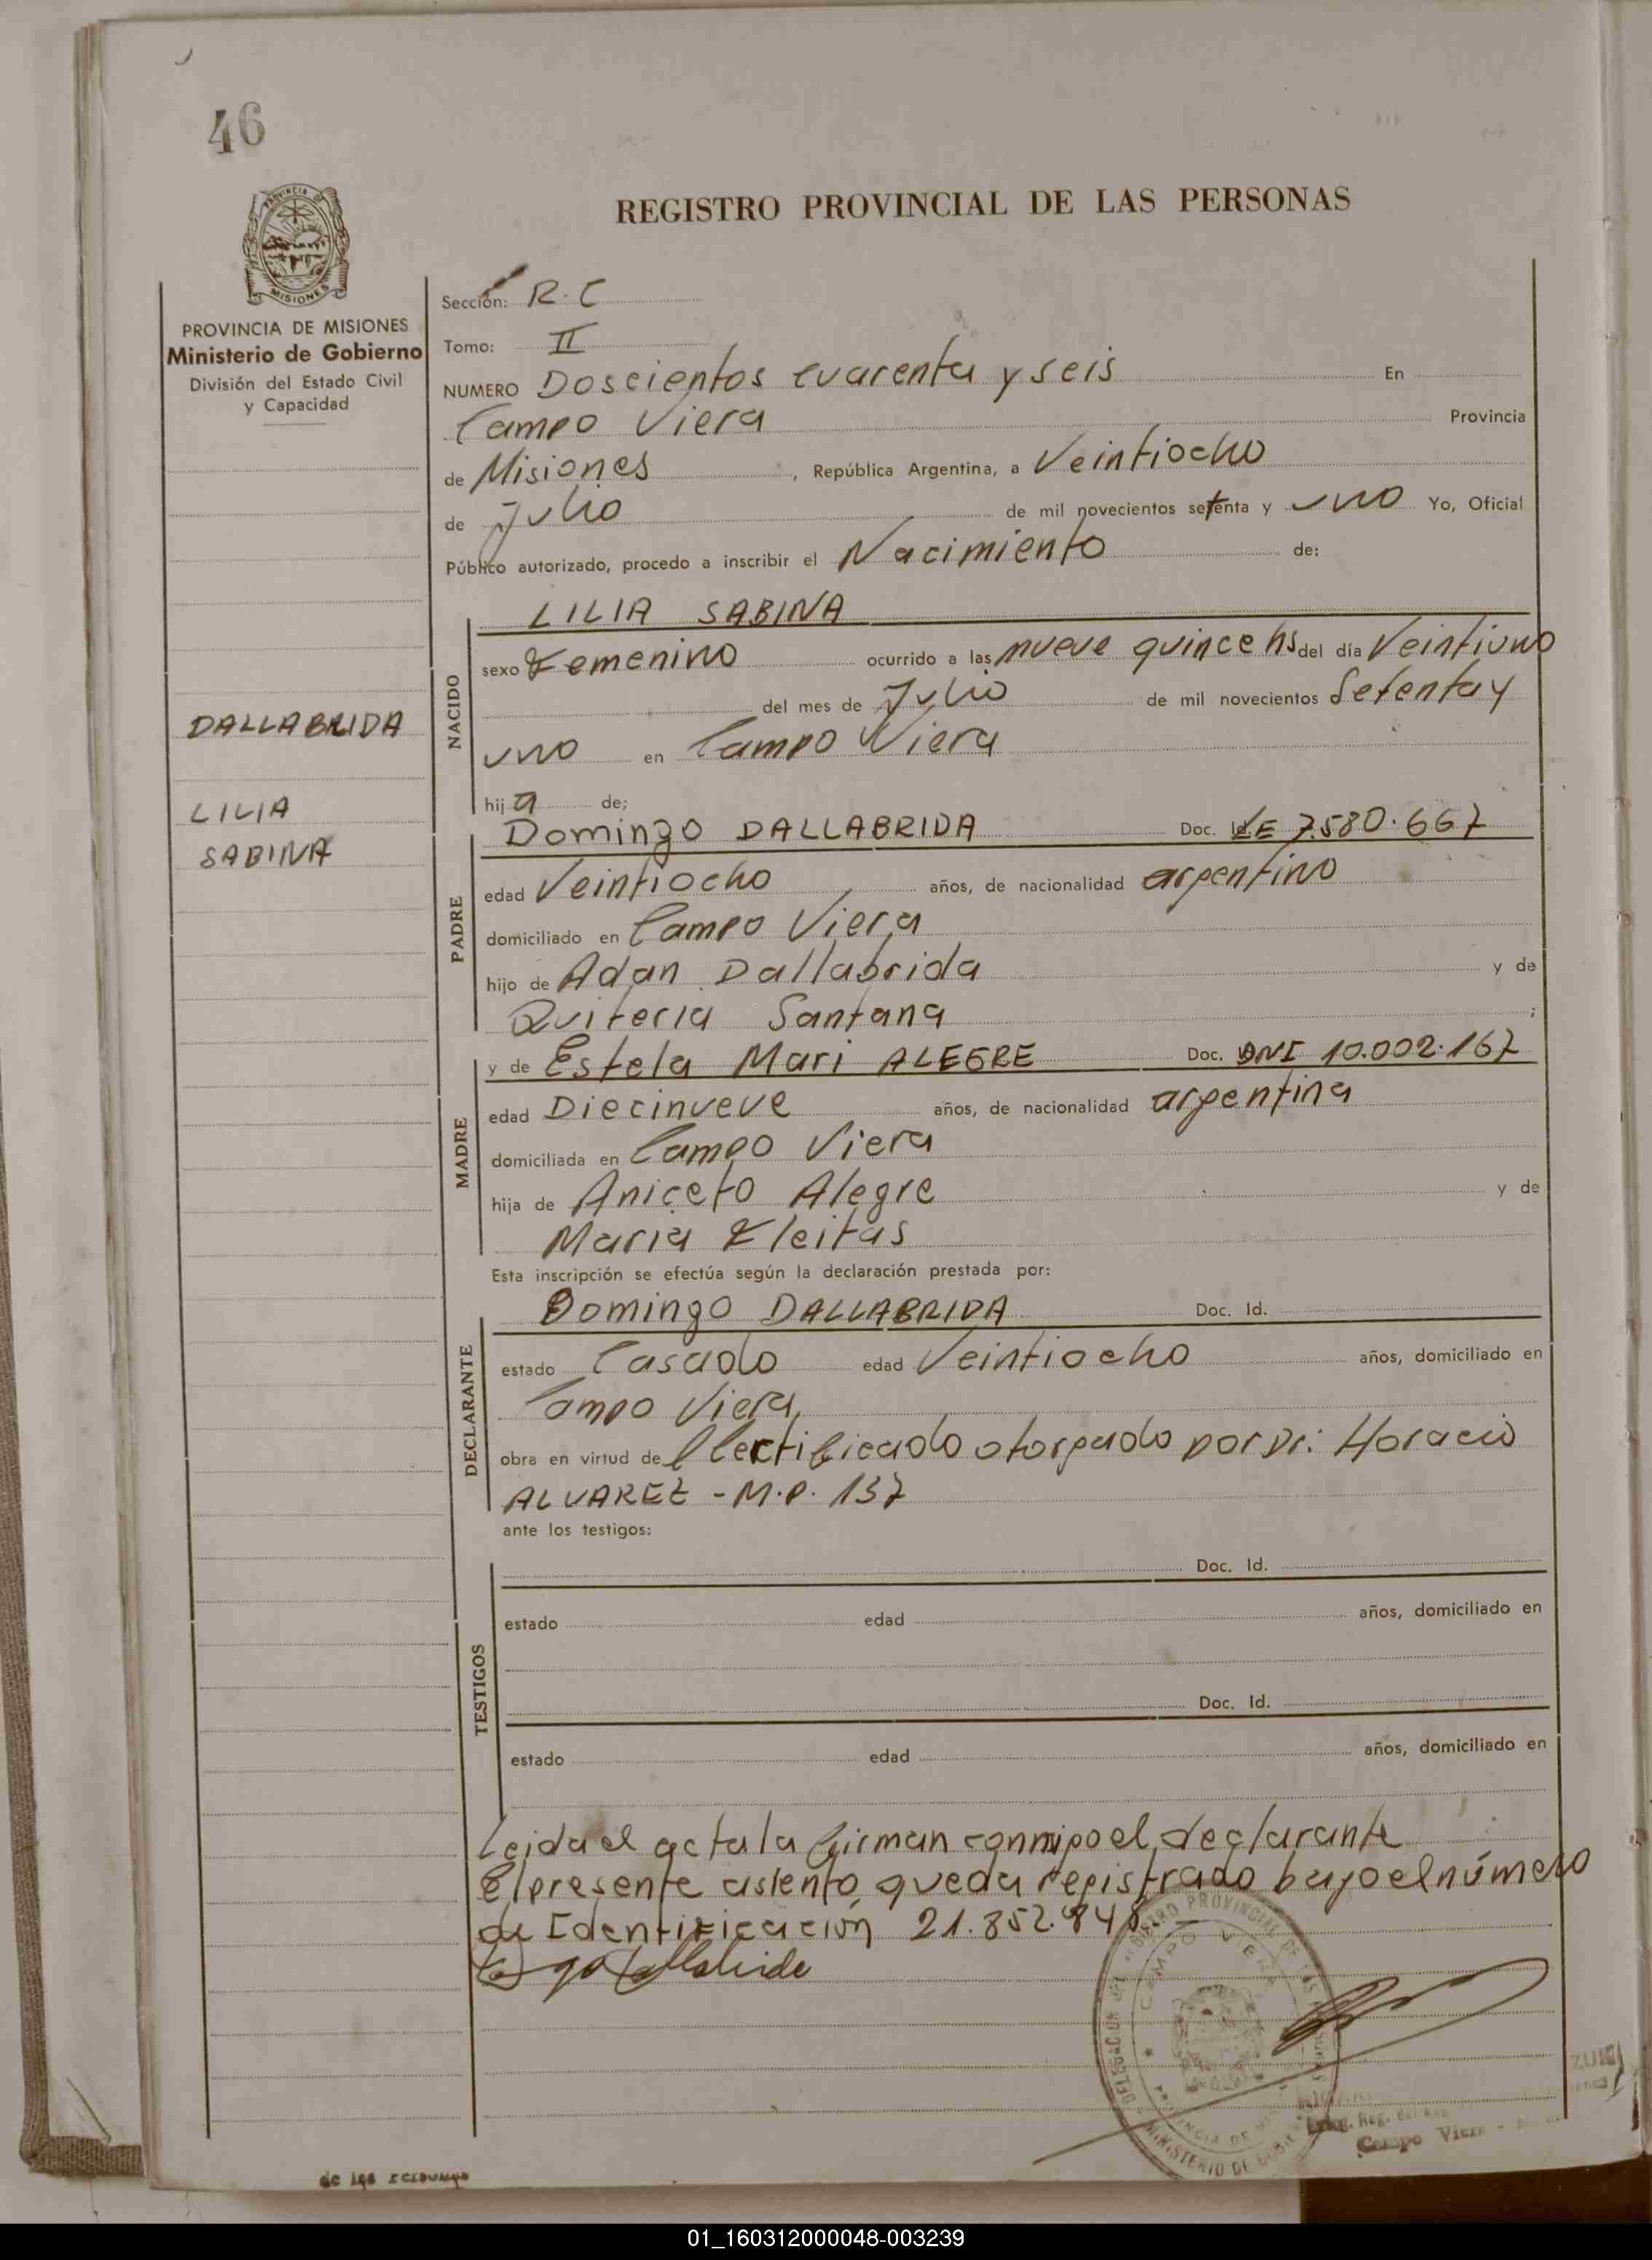 46
REGISTRO PROVINCIAL DE LAS PERSONAS
PROVINCIA DE MISIONES
Ministerio de Gobierno
División del Estado Civil
y Capacidad
DALLABRIDA
LILIA
SABINA
Sección: R.C
Tomo: II
NUMERO Doscientos cuarenta y seis En
Campo Viera Provincia
de Misiones, República Argentina, a Veintiocho
de Julio de mil novecientos setenta y uno Yo, Oficial
Público autorizado, procedo a inscribir el Nacimiento de:
NACIDO
LILIA SABINA
sexo Femenino ocurrido a las nueve quince hs del día Veintiuno
del mes de Julio de mil novecientos Setenta y
uno en Campo Viera
hija de;
PADRE
Domingo DALLABRIDA Doc. LE 7.580.667
edad Veintiocho años, de nacionalidad argentino
domiciliado en Campo Viera
hijo de Adan Dallabrida y de
Quiteria Santana ;
MADRE
y de Estela Mari ALEGRE Doc. DNI 10.002.167
edad Diecinueve años, de nacionalidad argentina
domiciliada en Campo Viera
hija de Aniceto Alegre y de
Maria Fleitas
Esta inscripción se efectúa según la declaración prestada por:
DECLARANTE
Domingo DALLABRIDA Doc. Id.
estado Casado edad Veintiocho años, domiciliado en
Campo Viera
obra en virtud de Certificado otorgado por Dr: Horacio
ALVAREZ - M.P. 137
ante los testigos:
TESTIGOS
Doc. Id.
estado edad años, domiciliado en
Doc. Id.
estado edad años, domiciliado en
Leida el acta la firman conmigo el declarante
El presente asiento queda registrado bajo el número
de Identificación
CAMPO VIERA
PROVINCIA DE
MINISTERIO DE
Campo Viera
01_160312000048-003239